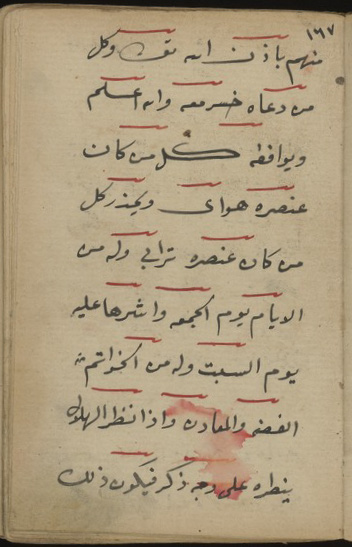 ١٦٧
منهم باذن الله تعالى وكل
من دعاه خسر معه والله اعلم
ويوافقه كل من كان
عنصره هواى ويحذر كل
من كان عنصره ترابي وله من
الايام يوم الجمعه واشرها عليه
يوم السبت وله من الخواتم
الفضه والمعادن واذا نظر الهلال
ينظره على وجه ذكر فيكون ذلك